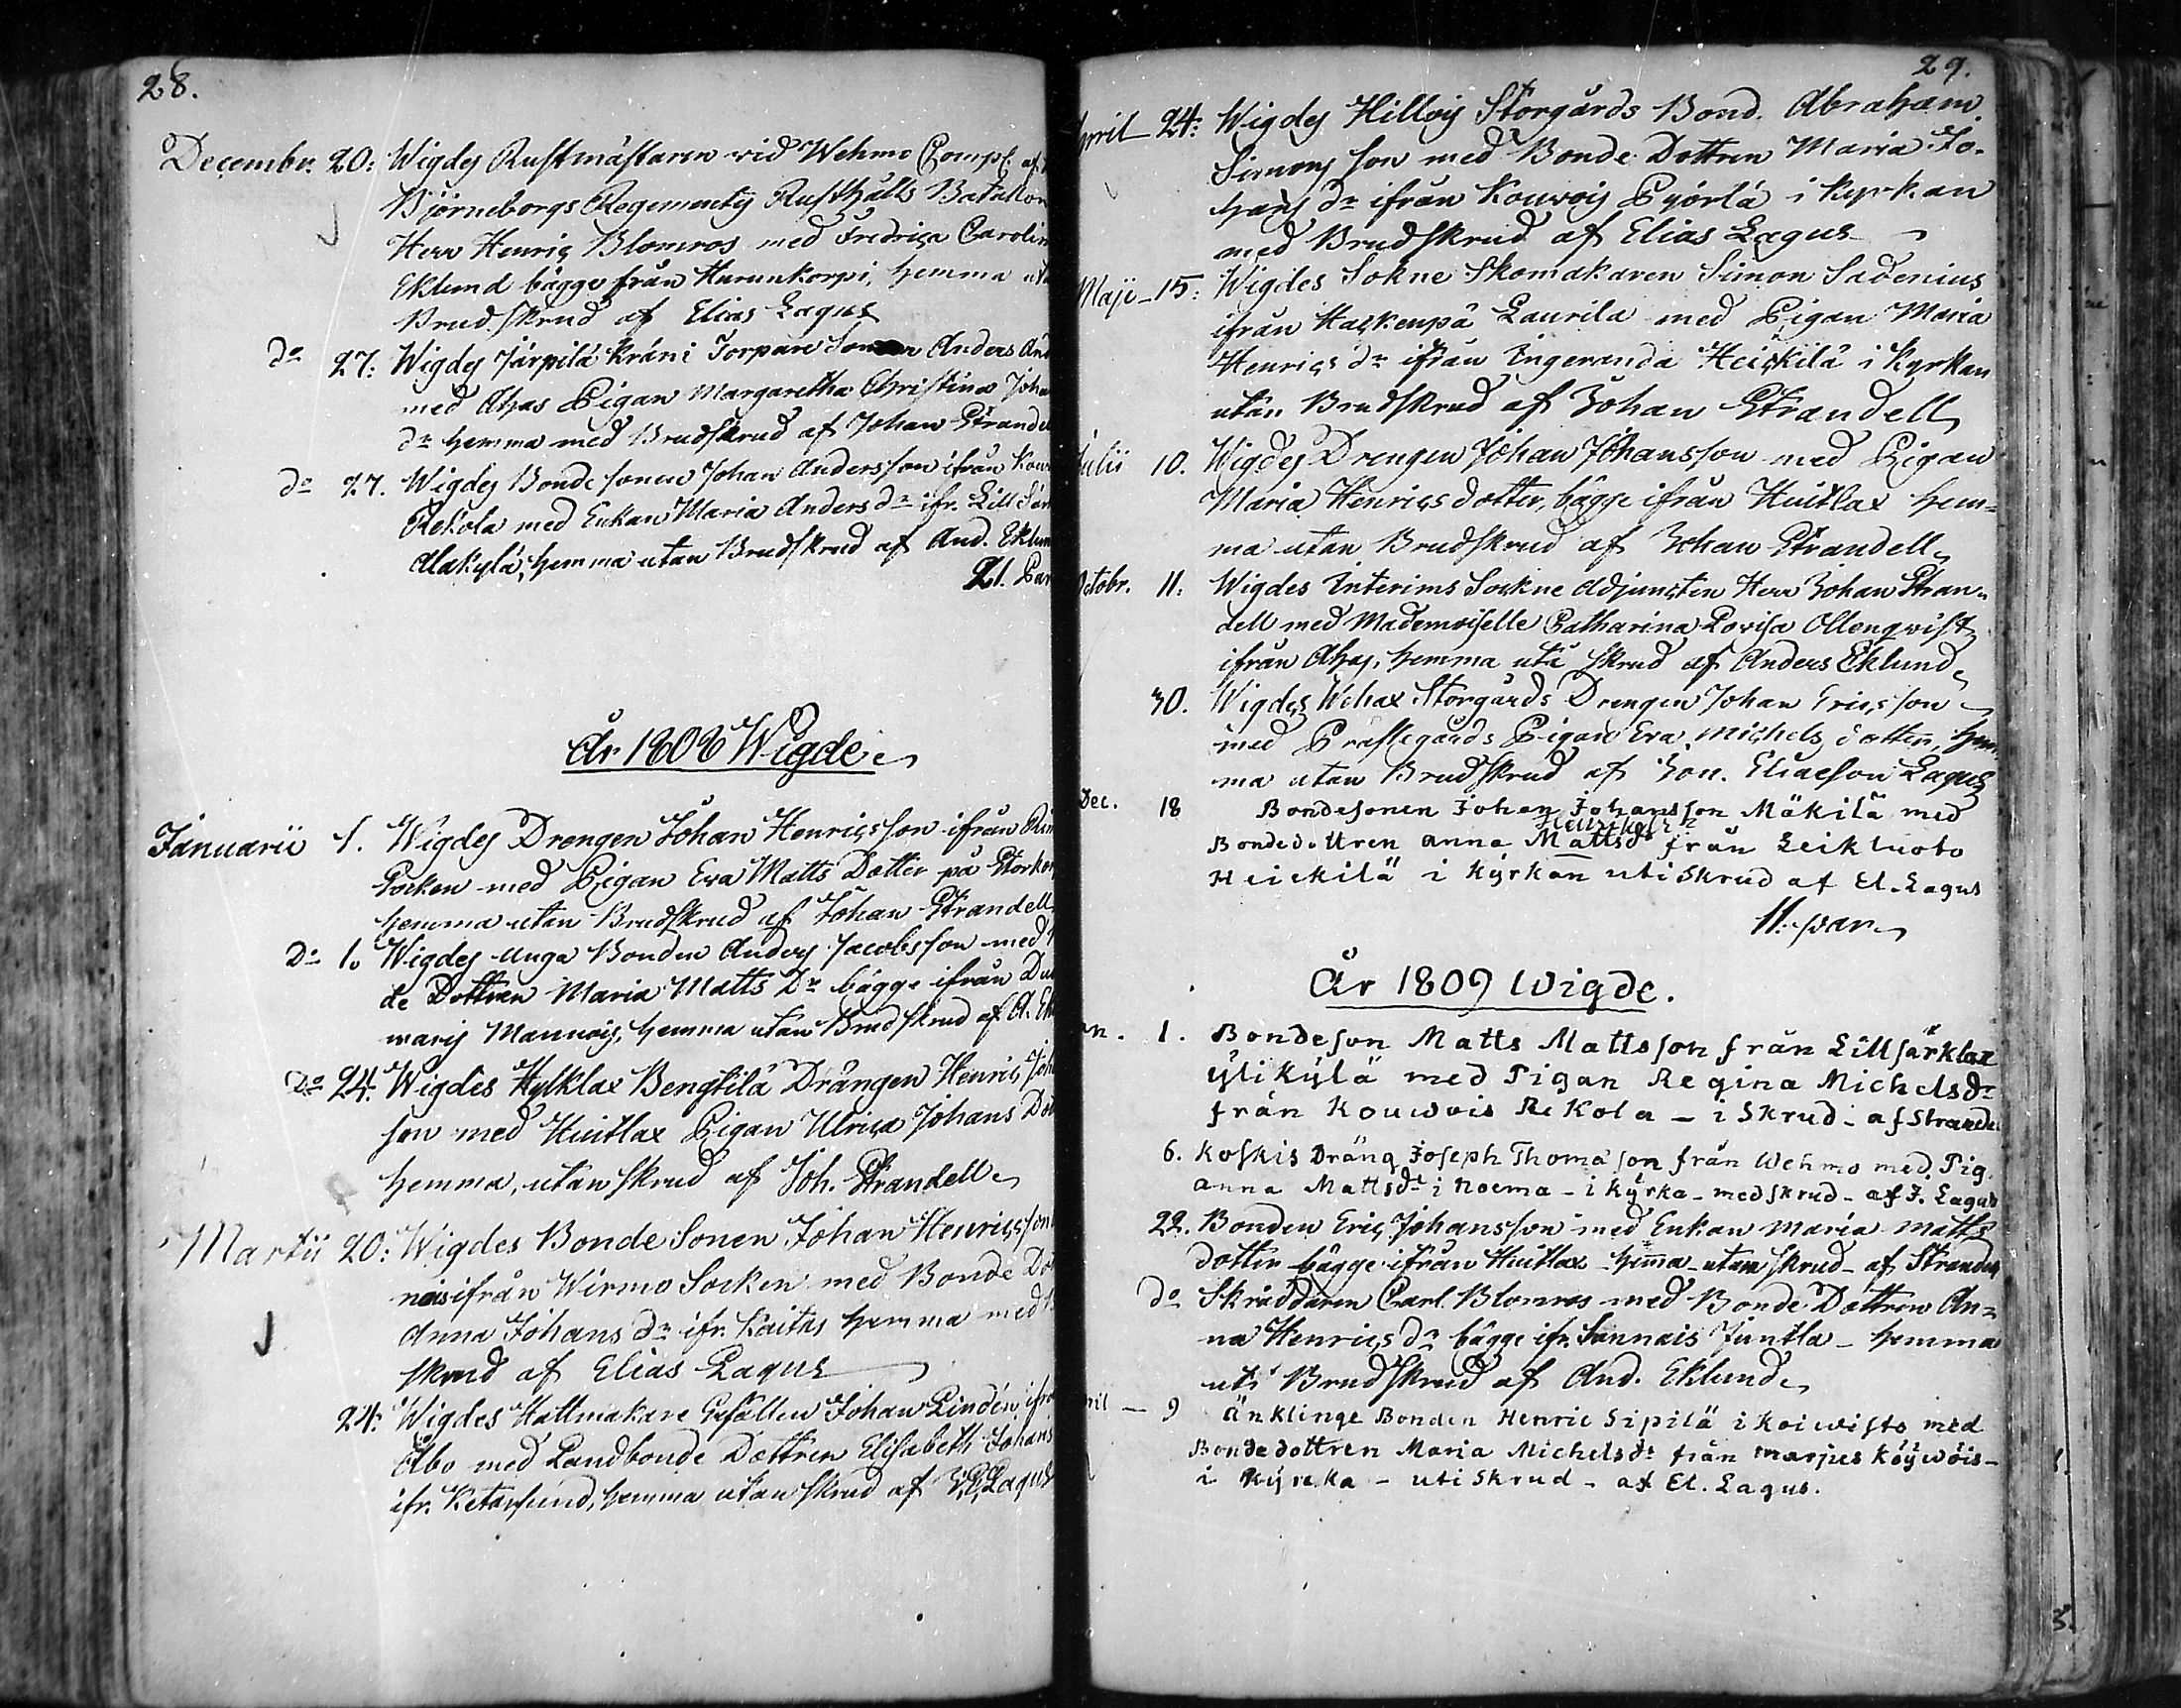 28.
Decembr. 20: Wigdes Rustmästaren wid Wehmo Comp: af
Björneborgs Regementes Rusthålls Batallion
Herr Henric Blomros med Fredrica Carolin
Eklund bägge från Hurunkorpi, hemma uta
Brudskrud af Elias Lagus
do 27: Wigdes Järpilä kräni Torpare Sonen Anders And
med Ahas Pigan Margaretha Christina Joha
dr hemma med Brudskrud af Johan Strandel
do 27. Wigdes Bonde sonen Johan Andersson ifrån Kouv
Rekola med Enkan Maria Anders dr ifr. Lill Sär
Alakylä, hemma utan Brudskrud af And. Eklun
21. Par
År 1808 Wigde
Januarii 1. Wigdes Drengen Johan Henricsson ifrån
Socken med Pigan Eva Matts Dotter på Storkor
hemma utan Brudskrud af Johan Strandell
Do 1. Wigdes unga Bonden Anders Jacobsson med
de Dottren Maria Matts Dr bägge ifrån
maris Mannois, hemma utan Brudskrud af A. Ek
Do 24. Wigdes Hylklax Bengtilä Drängen Henric Joh
son med Huitlax Pigan Ulrica Johans Dot
hemma, utan skrud af Joh. Strandell
Martii 20: Wigdes Bonde Sonen Johan Henricsson
ifrån Wirmo Socken med Bonde Dot
Anna Johans dr ifr. Kaitas hemma med
skrud af Elias Lagus
24: Wigdes Hattmakare Gesällen Johan Lindén ifrå
Åbo med Landbonde Dottren Elisabeth Johans
ifr. Ketarsund, hemma utan skrud af J. E. Lagus
29.
April 24: Wigdes Hillois Storgårds Bond. Abraham
Simons son med Bonde Dottren Maria Jo-
hans dr ifrån Kouvois Pyörlä i kyrkan
med Brudskrud af Elias Lagus
Maji 15: Wigdes Sokne Skomakaren Simon Sadenius
ifrån Haskenpä Laurila med Pigan Maria
Henrics dr ifrån Ingeranda Heickilä i Kyrkan
utan Brudskrud af Johan Strandell
Julii 10. Wigdes Drengen Johan Johansson med Pigan
Maria Henricsdotter, bägge ifrån Huitlax hem-
ma utan Brudskrud af Johan Strandell
Octobr. 11: Wigdes Interims Sockne Adjuncten Herr Johan Stran-
dell med Mademoiselle Catharina Lovisa Ollenqvist
ifrån Ahas, hemma uti skrud af Anders Eklund
30. Wigdes Wehax Storgårds Drengen Johan Ericsson
med Prästegårds Pigan Eva Michels dotter, hem-
ma utan Brudskrud af Jon. Eliaeson Lagus
Dec. 18 Bondesonen Johan Johansson Mäkilä med
Henriksdr
Bondedottren Anna Mattsdr från Leikluoto
Heickilä i Kyrkan uti Skrud af El. Lagus
11. par
År 1809 Wigde.
n. 1. Bondeson Matts Mattsson från Lillsärklax
ylikylä med Pigan Regina Michelsdr
från Kouwois Rekola - i Skrud - af Strande
6. Koskis Dräng Joseph Thomason från Wehmo med Pig.
Anna Mattsdr i Noema - i kyrka - med skrud - af J. Lagus
22. Bonden Eric Johansson med Enkan Maria Matts
dotter bägge ifrån Huitlax - hemma - utan skrud - af Strandell
do Skräddaren Carl Blomros med Bonde Dottren An-
na Henrics dr bägge ifr. Sannais Juntla - hemma
uti Brudskrud af And. Eklund
ril 9 Änklinge Bonden Henric Sipilä i Koiwisto med
Bondedottren Maria Michelsdr från Marjus Köywöis -
i Kyrcka - uti Skrud - af El. Lagus.